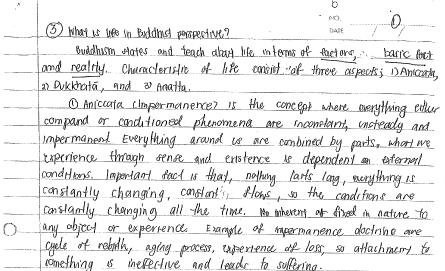 NO. ①
DATE
③ What is life in Buddhist perspective?
Buddhism states and teach about life in terms of factors, basic fact
and reality. Characteristic of life consist of three aspects; 1) Aniccata,
2) Dukkhata, and 3) Anatta.
① Aniccata (Impermanence) is the concept where everything either
compand or conditioned phenomena are inconstant, unsteady and
impermanent Everything around us are combined by parts, what we
experience through sense and existence is dependent on external
conditions. Important fact is that, nothing lasts long, everything is
constantly changing, constant flows, so the conditions are
constantly changing all the time. No inherent or fixed in nature to
any object or experience. Example of impermanence doctrine are
cycle of rebirth, aging process, experience of loss, so attachment to
something is ineffective and leads to suffering.